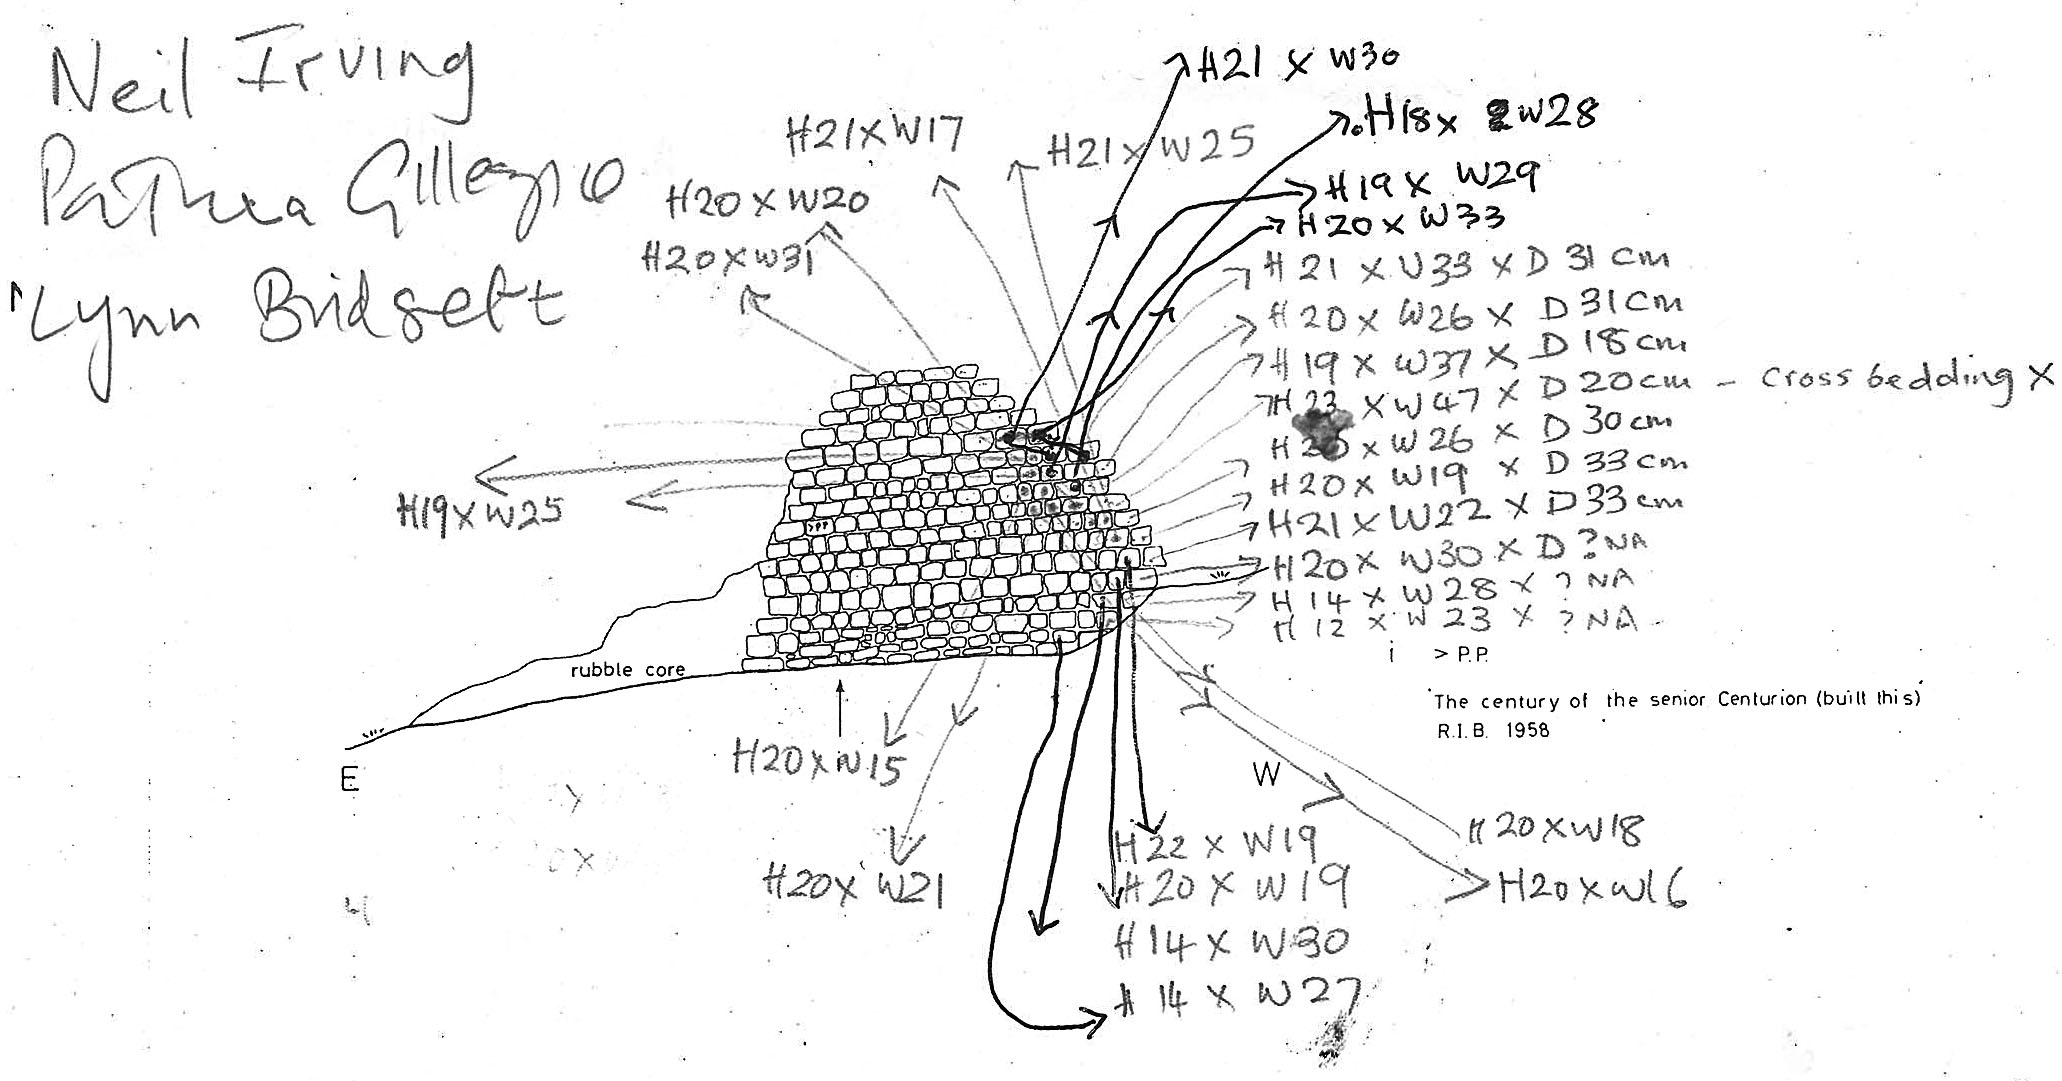 Neil Irving
Gillespie
Lynn Bridgett
H21 x W30
H18 x W28
H21 x W17
H21 x W25
H19 x W29
H20 x W20
H20 x W33
H20 x W31
H 21 x W33 x D 31 cm
H 20 x W26 x D 31cm
H 19 x W37 x D 18cm
H 23 x W47 x D 20cm - cross bedding X
x W26 x D 30cm
H20 x W19 x D 33cm
H19 x W25
H21 x W22 x D33cm
>PP
H20 x W30 x D ? NA
H 14 x W 28 x ? NA
H 12 x W 23 x ? NA
i > P.P.
rubble core
'The century of the senior Centurion (built this)'
R.I.B. 1958
H20 x W15
E
W
H22 x W19
H20 x W18
H20 x W21
H20 x W19
H20 x W16
H14 x W30
H 14 x W27